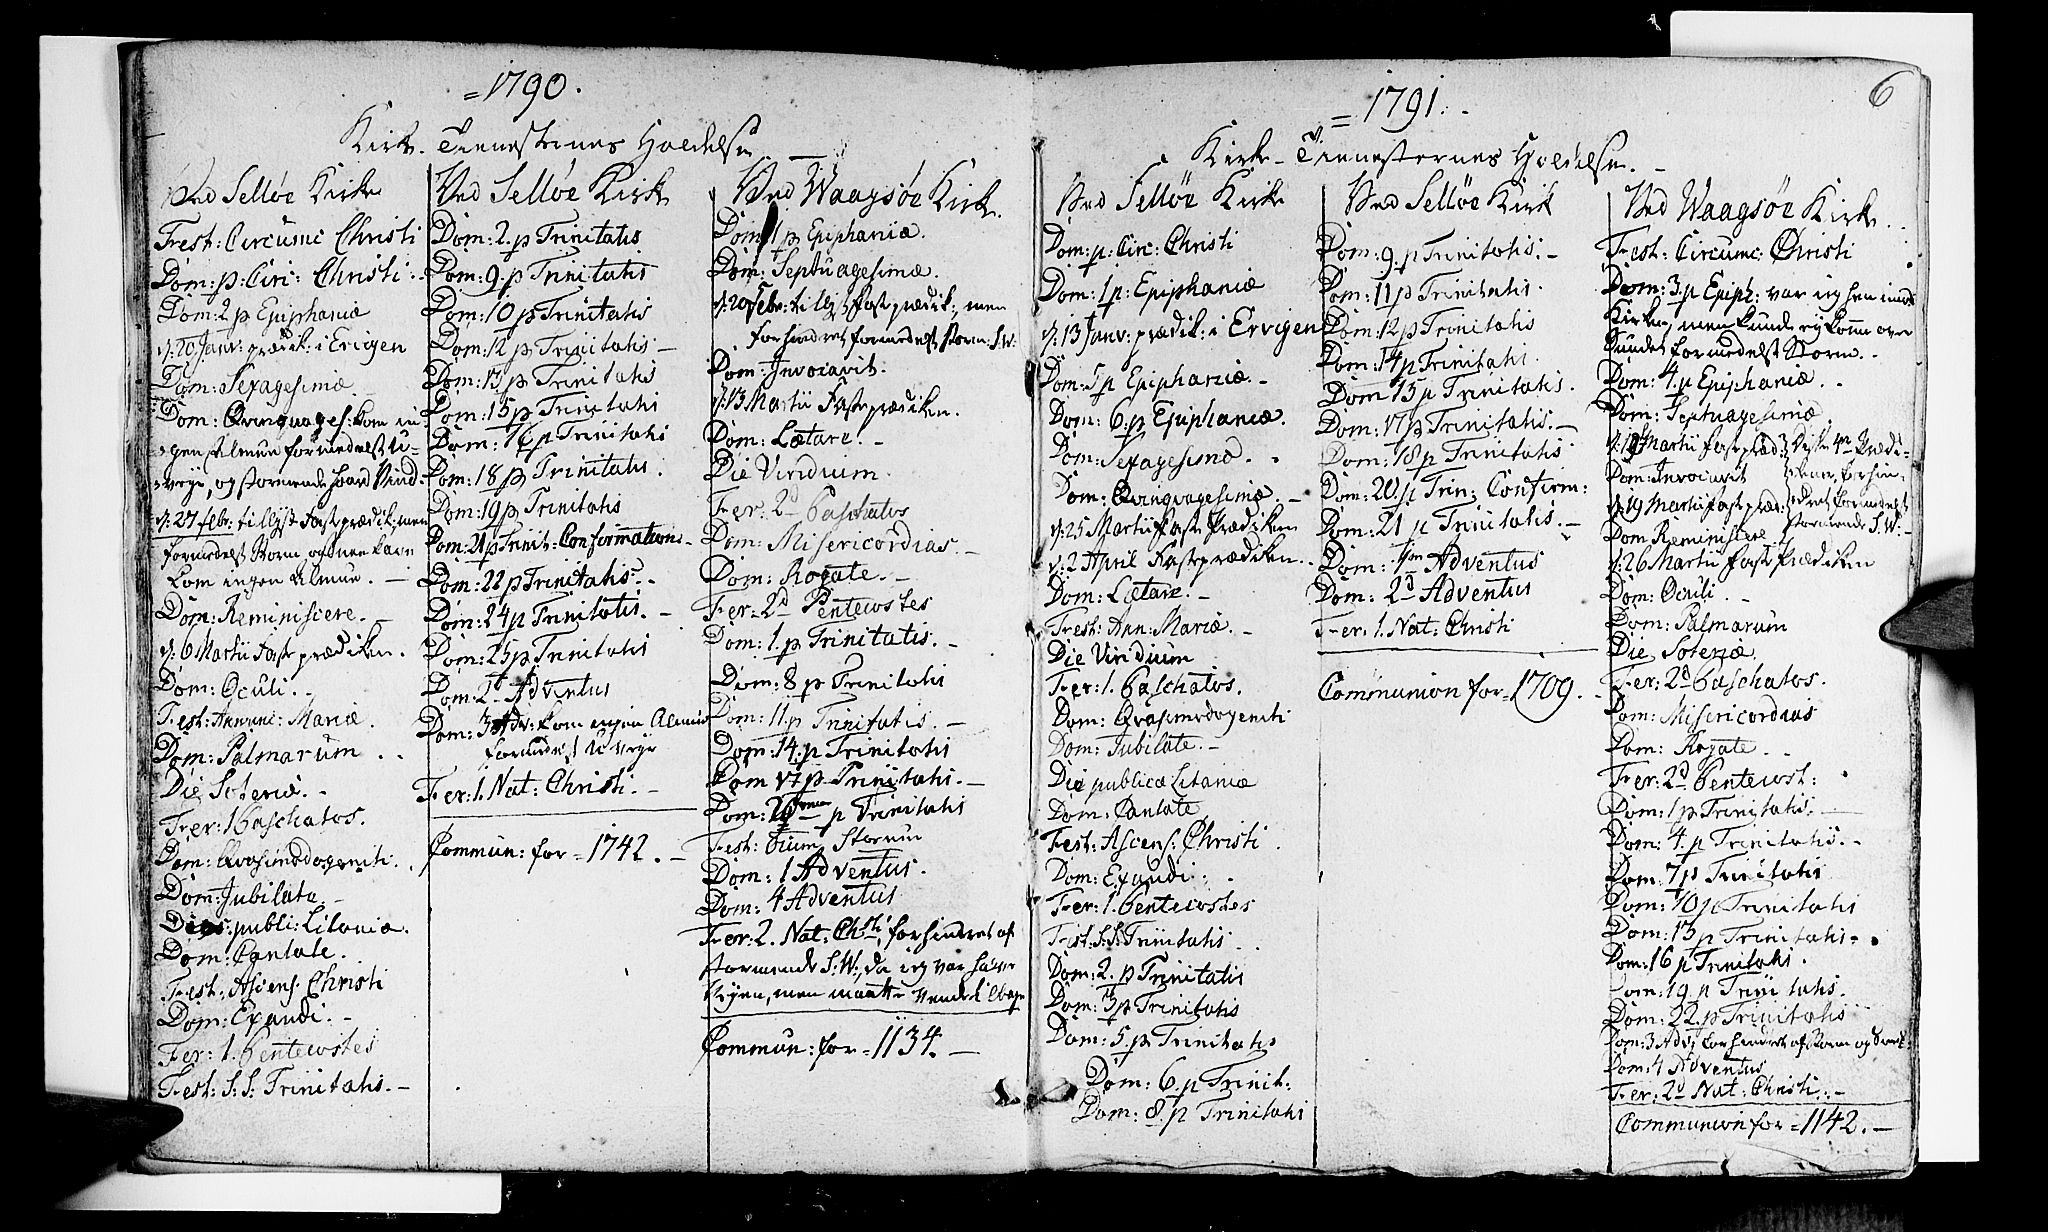 =1790.
Kirke-Tienesternes Holdelse
Ved Selløe Kirke
Fest: Circumc Christi
Dom: p: Circ: Christi.
Dom: 2 p Epiphaniæ
d: 20 Janv: prædik: i Erigen
Dom: Sexagesimæ
Dom: Qvinqvages: kom in-
gen Almue formedelst U-
veyr, og stormende haard Vind
d: 27 febr: tillyst Fasteprædik: men
formedelst Storm og Snee kave
kom ingen Almue. -
Dom: Reminiscere. -
d: 6 Martii Fasteprædiken.
Dom: Oculi. -
Fest: Annunc: Mariæ.
Dom: Palmarum . .
Die Soteriæ. -
Fer: 1 Paschatos.
Dom: Qvasimodogeniti.
Dom: Jubilate. -
Dies publi: Litaniæ.
Dom: Cantate.
Fest: Ascens: Christi
Dom: Exaudi. -
Fer: 1. Pentecostes
Fest: S: S: Trinitatis. -
Ved Selløe Kirke
Dom: 2. p Trinitatis
Dom: 9. p Trinitatis
Dom: 10 p Trinitatis
Dom: 12 p Trinitatis -
Dom: 13 p Trinitatis
Dom: 15 p Trinitatis
Dom: 16 p Trinitatis
Dom: 18 p Trinitatis.
Dom: 19 p Trinitatis
Dom: 21 p Trinit: Confirmation -
Dom: 22 p Trinitatis. -
Dom: 24 p Trinitatis. -
Dom: 25 p Trinitatis
Dom: 2d Adventus
Dom: 3 Adv: kom ingen Almue
formedelst Uveyr
Fer: 1. Nat: Christi. -
Commun: for = 1742. -
Ved Waagsøe Kirke.
Dom: 1 p Epiphaniæ.
Dom: Septuagesimæ.
d: 20 Febr: tillyst fasteprædik: men
forhindret formedelst Storm: S:W:
Dom: Invocavit.
d: 13 Martii Fasteprædiken.
Dom: Lætare. -
Die Viridium
Fer: 2d Paschatos
Dom: Misericordias. -
Dom: Rogate. -
Fer: 2d Pentecostes
Dom: 1. p Trinitatis. -
Dom: 8 p Trinitatis
Dom: 11. p Trinitatis. -
Dom: 14. p Trinitatis
Dom 17 p Trinitatis. -
Dom: 20 p Trinitatis
Fest:
Dom: 1 Adventus.
Dom: 4 Adventus
Fer: 2. Nat: Chsti, forhindret af
stormende S:W:, da ieg var paa
Veyen, men maatte vende tilbage
Commun: for = 1134. -
6
= 1791. -
Kirke-Tienesternes Holdelse. -
Ved Selløe Kirke
Dom: p: Circ: Christi
Dom: 1 p: Epiphaniæ
d: 13 Janv: prædik: i Ervigen
Dom: 5 p Epiphaniæ. -
Dom: 6. p Epiphaniæ.
Dom: Sexagesimæ. .
Dom: Qvinqvagesimæ. -
d: 25 Martii Faste Prædiken
d: 2 April Fasteprædiken.
Dom: Lætare. -
Fest: Ann: Mariæ. -
Die Viridium
Fer: 1. Paschatos.
Dom: Qvasimodogeniti
Dom: Jubilate. -
Die publicæ Litaniæ
Dom: Cantate
Fest: Ascens: Christi.
Dom: Exaudi. .
Fer: 1. Pentecostes
Fest: S:S: Trinitatis. .
Dom: 2. p Trinitatis
Dom: 3 p Trinitatis
Dom: 5. p Trinitatis
Dom: 6. p Trinit:
Dom: 8. p Trinitatis
Ved Selløe Kirk
Dom: 9. p Trinitatis. -
Dom: 11 p Trinitatis.
Dom: 12 p Trinitatis
Dom: 14 p Trinitatis.
Dom 15 p Trinitatis.
Dom: 17 p Trinitatis. -
Dom: 18 p Trinitatis
Dom: 20. p Trin: Confirm:
Dom: 21 p Trinitatis. -
Dom: 1 Adventus
Dom: 2d Adventus
Fer: 1. Nat: Christi
Communion for = 1709. -
Ved Waagsøe Kirke.
Fest: Circumc: Christi
Dom: 3. p Epiph: var ieg hen imod
Kirken, men kunde ey komme over
Sundet formedelst Storm. -
Dom: 4. p Epiphaniæ. .
Dom: Septuagesimæ
Martii fastepræd:
Dom: Invocavit
d: 19 Martii fastepræd:
Disse Prædi-
kener forhin-
dret formedelst
stormende S:W: -
Dom Reminiscere
d: 26 Martii faste Prædiken
Dom: Oculi. -
Dom: Palmarum
Die Soteriæ
Fer: 2d Paschatos.
Dom: Misericordias
Dom: Rogate. .
Fer: 2d Pentecost:
Dom: 1 p Trinitatis. -
Dom: 4. p Trinitatis. -
Dom: 7 p Trinitatis
Dom: 10 p Trinitatis
Dom: 13 p Trinitatis. .
Dom: 16 p Trinitatis.
Dom: 19 p Trinitatis.
Dom: 22. p Trinitatis
Dom: 3 Adv: forhindret af Storm og
Dom: 4 Adventus
Fer: 2d Nat: Christi. -
Communion for = 1142. -